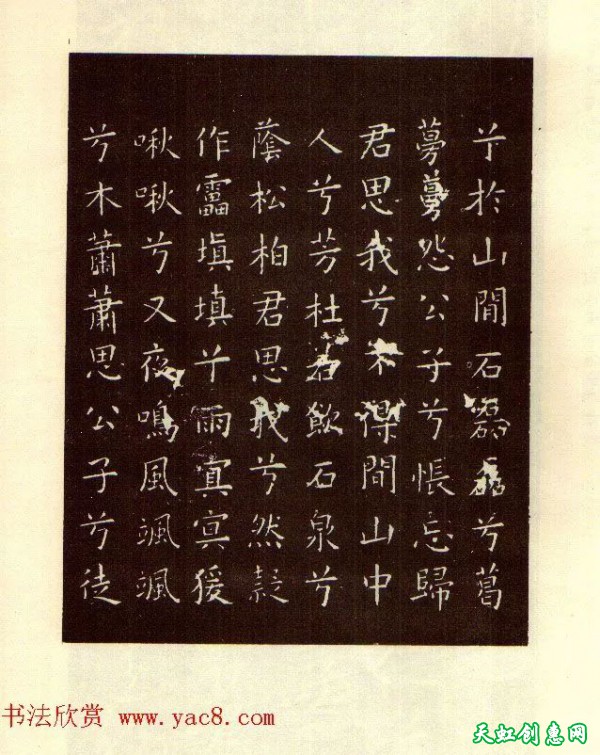 兮於山間石磊磊兮葛
蔓蔓怨公子兮悵忘歸
君思我兮不得間山中
人兮芳杜若飲石泉兮
蔭松柏君思我兮然疑
作靁填填兮雨冥冥猨
啾啾兮又夜鳴風颯颯
兮木蕭蕭思公子兮徒
书法欣赏 www.yac8.com
天虹创惠网